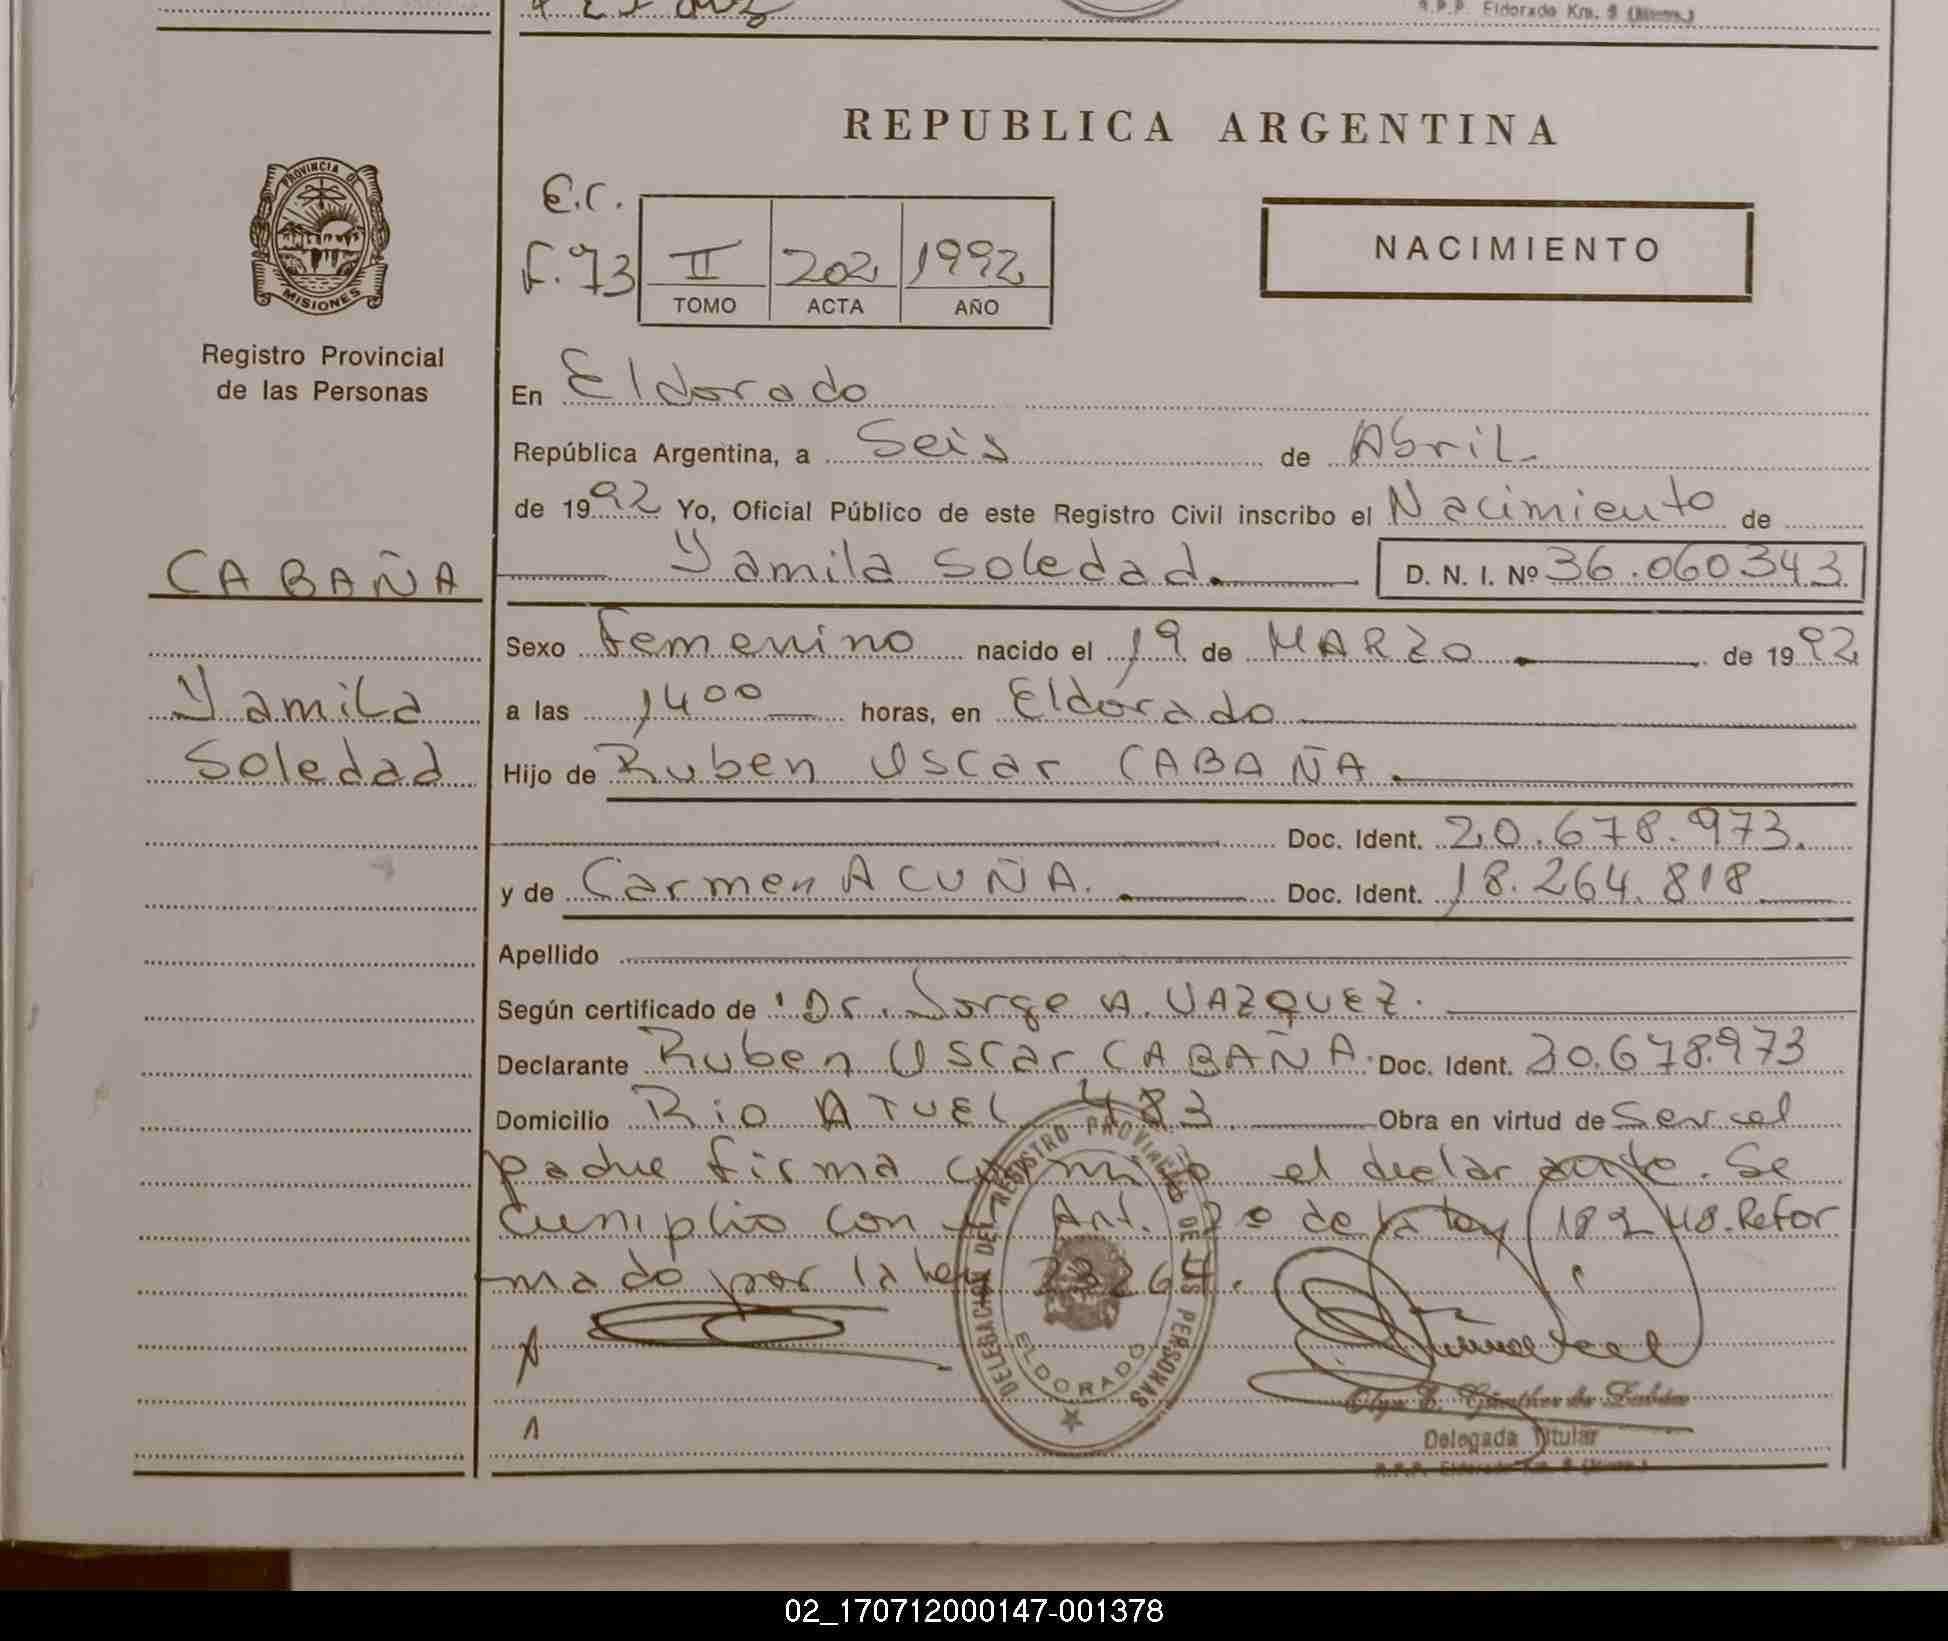 R.P.P. Eldorado Km. 9 (Mnes.)
REPUBLICA ARGENTINA
PROVINCIA DE
MISIONES
Registro Provincial
de las Personas
E.C.
F. 73
II 202 1992
TOMO ACTA AÑO
NACIMIENTO
En Eldorado
República Argentina, a Seis de Abril
de 1992 Yo, Oficial Público de este Registro Civil inscribo el Nacimiento de
CABAÑA
Yamila Soledad. D. N. I. Nº 36.060343
Sexo Femenino nacido el 19 de MARZO de 1992
Yamila
a las 1400 horas, en Eldorado
Soledad
Hijo de Ruben Oscar CABAÑA.
Doc. Ident. 20.678.973.
y de Carmen ACUÑA. Doc. Ident. 18.264.818
Apellido
Según certificado de Dr. Jorge A. VAZQUEZ.
Declarante Ruben Oscar CABAÑA. Doc. Ident. 20.678.973
Domicilio Rio ATUEL 483. Obra en virtud de Ser el
padre firma el declarante. Se
cumplio con el Art. 2º de la ley 18248. Refor
mado por la ley 23264.
DELEGACION DEL REGISTRO PROVINCIAL DE LAS PERSONAS
ELDORADO
Delegada Titular
R.P.P. Eldorado Km. 9 (Mnes.)
02_170712000147-001378